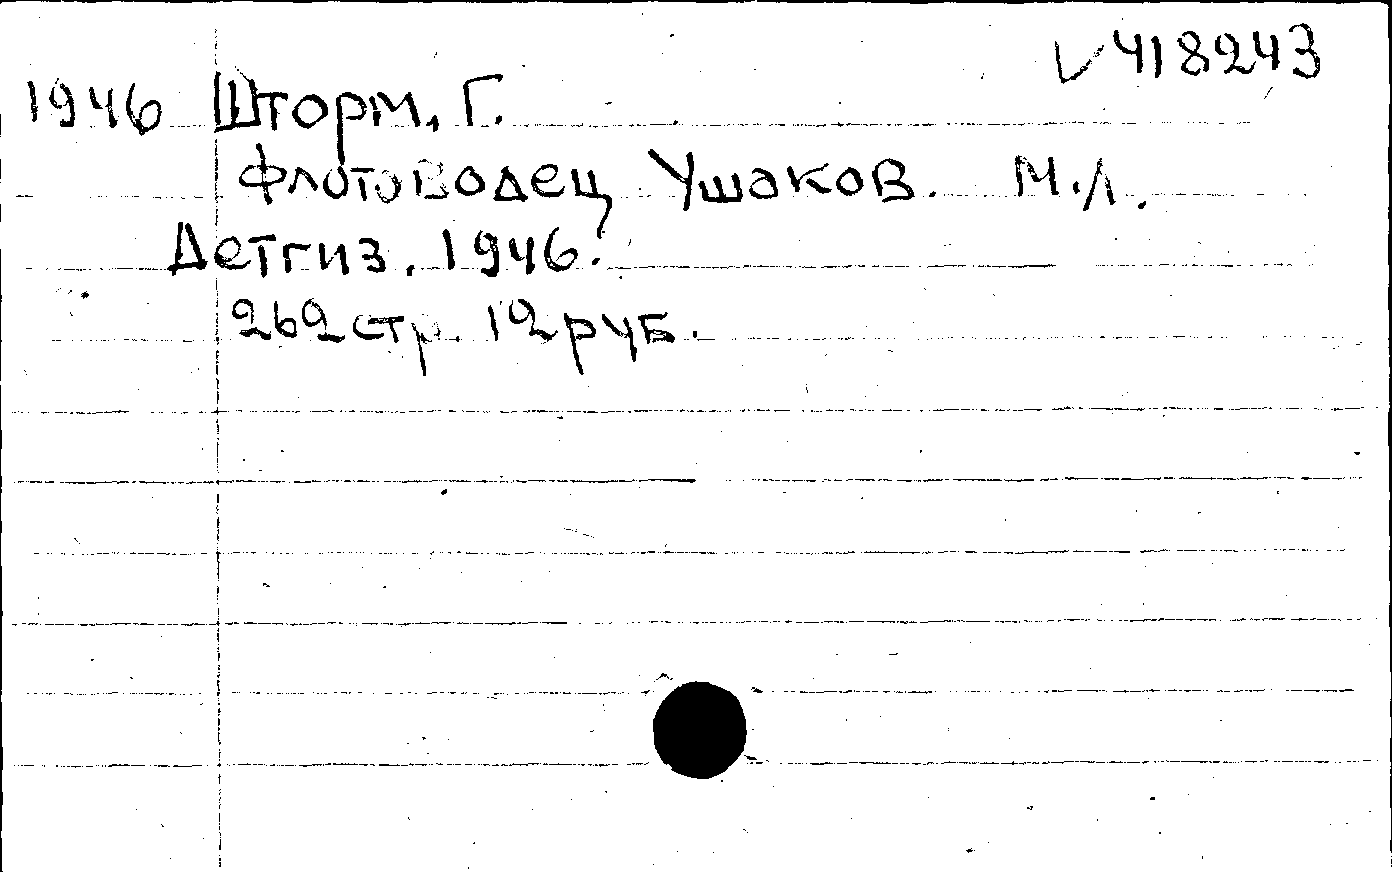 V 418243
1946 Шторм, Г.
Флотоводец Ушаков. М.Л.
Детгиз. 1946.
262 стр. 12 руб.